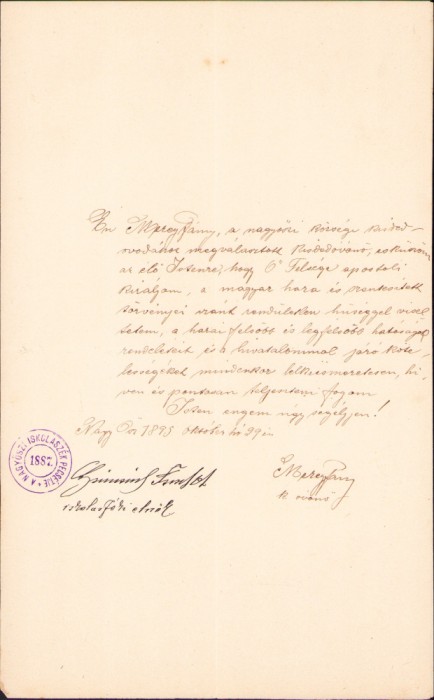 Én Mercz Fány, a nagyőszi községi kisded-
óvodához megválasztott kisdedóvónő, esküszöm
az élő Istenre, hogy Ő Felsége apostoli
királyom, a magyar haza és szentesített
törvényei iránt rendületlen hűséggel visel-
tetem, a hazai felsőbb és legfelsőbb hatóságok
rendeleteit és a hivatalommal járó köte-
lességeket mindenkor lelkiismeretesen, hí-
ven és pontosan teljesíteni fogom
Isten engem úgy segéljen!
Nagy Ősz 1895 október hó 29én
A NAGYŐSZI ISKOLASZÉK PECSÉTJE
1887.
iskolaszéki elnök
Mercz Fány
k. óvónő